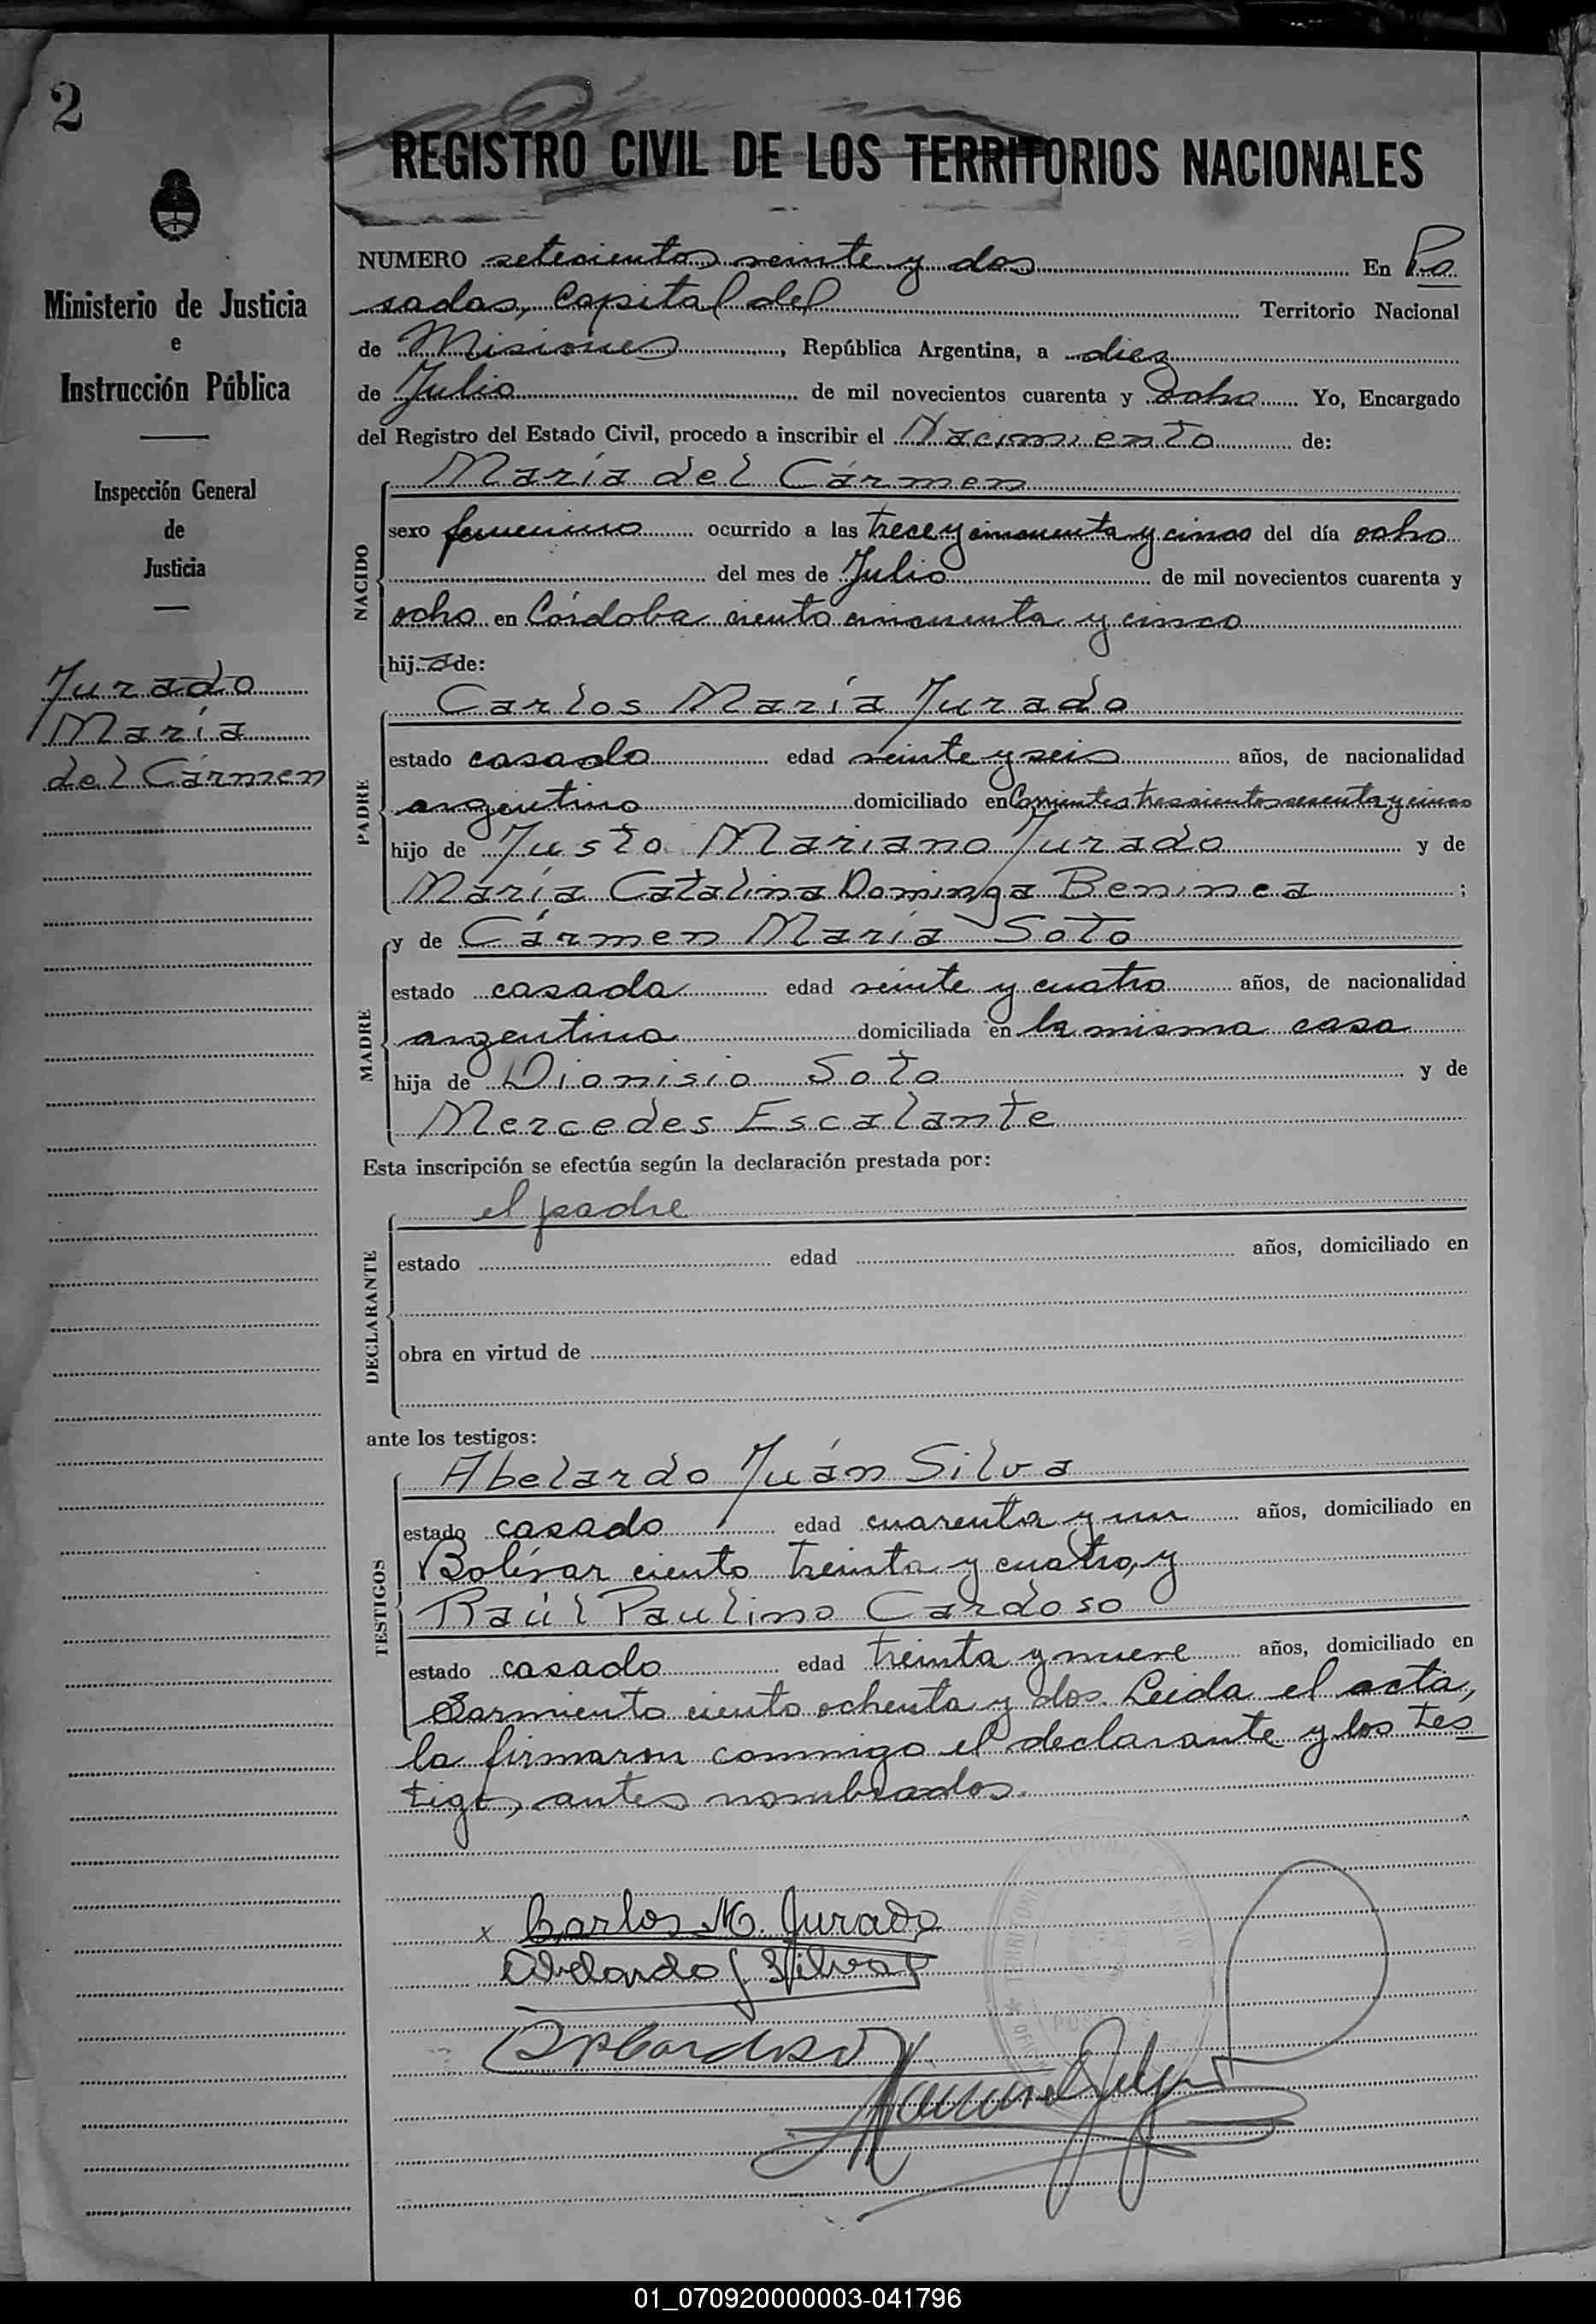 2
REGISTRO CIVIL DE LOS TERRITORIOS NACIONALES
Ministerio de Justicia
e
Instrucción Pública
Inspección General
de
Justicia
Jurado
María
del Cármen
NUMERO setecientos veinte y dos En Po
sadas, Capital del Territorio Nacional
de Misiones, República Argentina, a diez
de Julio de mil novecientos cuarenta y ocho Yo, Encargado
del Registro del Estado Civil, procedo a inscribir el Nacimiento de:
NACIDO
María del Cármen
sexo femenino ocurrido a las trece y cincuenta y cinco del día ocho
del mes de Julio de mil novecientos cuarenta y
ocho en Córdoba ciento cincuenta y cinco
hija de:
PADRE
Carlos María Jurado
estado casado edad veinte y seis años, de nacionalidad
argentino domiciliado en Corrientes trescientos sesenta y cinco
hijo de Justo Mariano Jurado y de
María Catalina Dominga Beninca ;
MADRE
y de Cármen María Soto
estado casada edad veinte y cuatro años, de nacionalidad
argentina domiciliada en la misma casa
hija de Dionisio Soto y de
Mercedes Escalante
Esta inscripción se efectúa según la declaración prestada por:
DECLARANTE
el padre
estado edad años, domiciliado en
obra en virtud de
ante los testigos:
TESTIGOS
Abelardo Juán Silva
estado casado edad cuarenta y un años, domiciliado en
Bolívar ciento treinta y cuatro, y
Raúl Paulino Cardoso
estado casado edad treinta y nueve años, domiciliado en
Sarmiento ciento ochenta y dos. Leida el acta,
la firmaron conmigo el declarante y los tes
tigos, antes nombrados.
x Carlos M. Jurado
Abelardo J Silva
RPCardoso
01_070920000003-041796